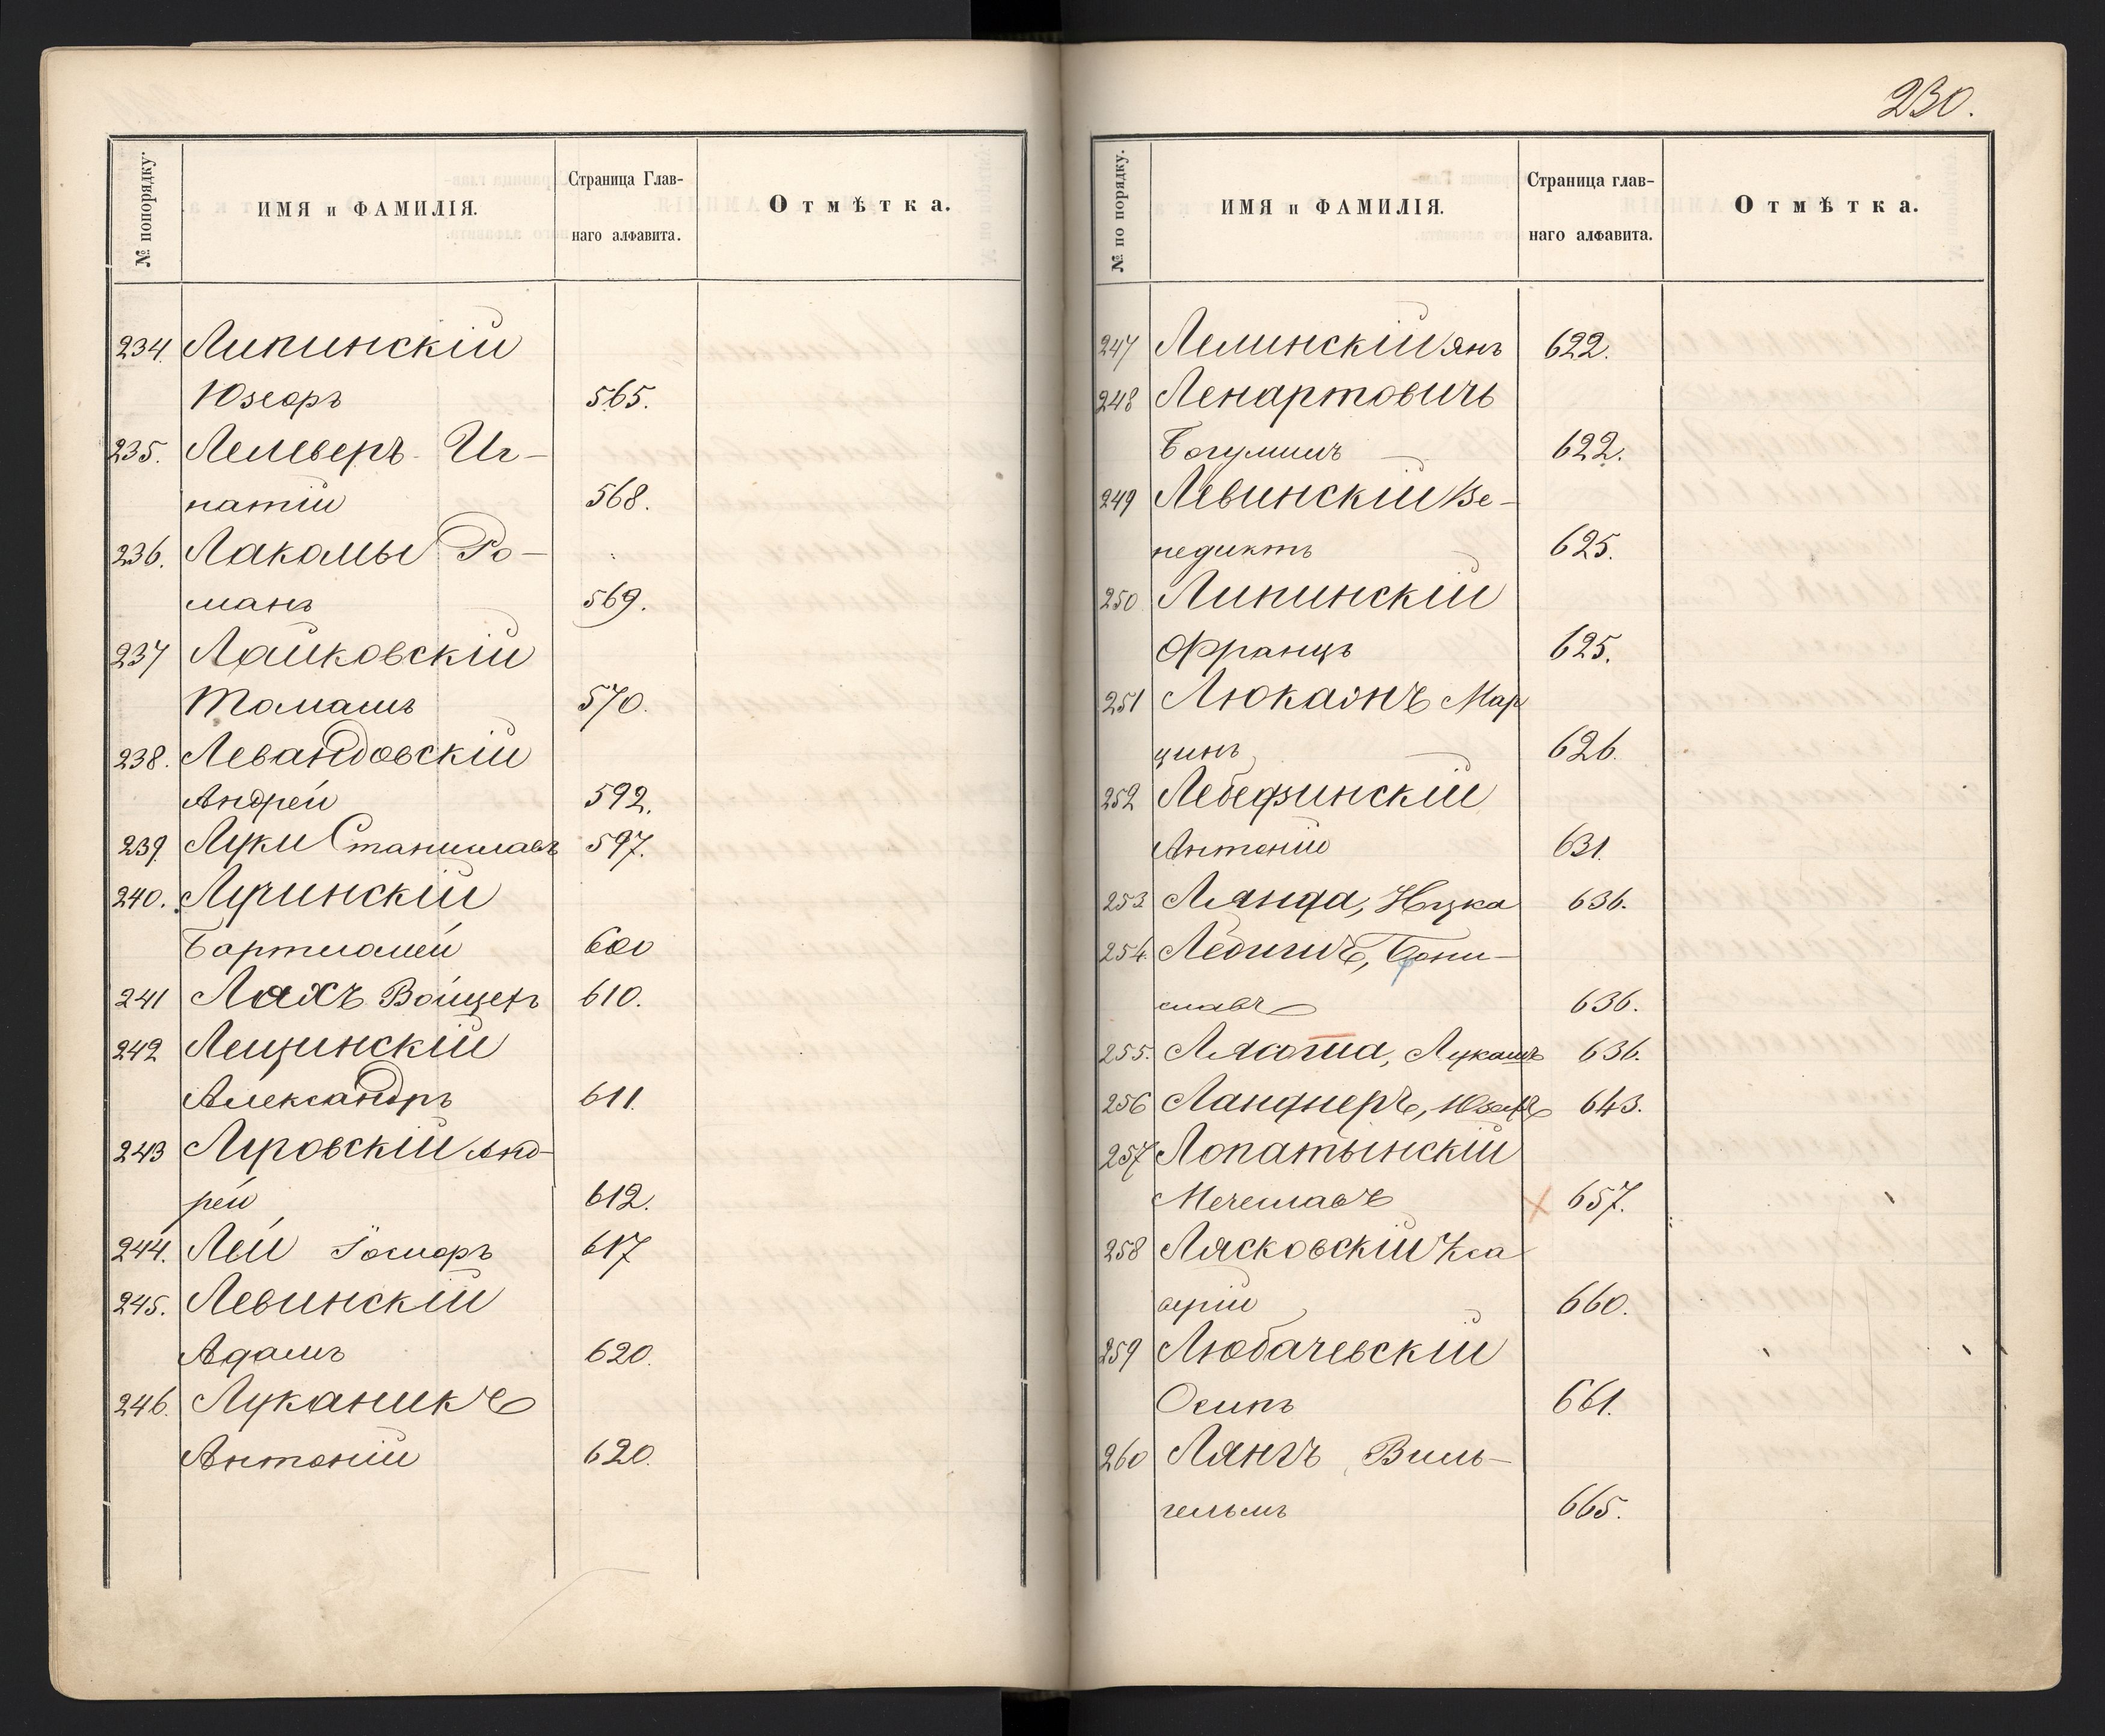 230.
№ попорядку.
ИМЯ и ФАМИЛІЯ.
Страница Глав-
наго алфавита.
Отмѣтка.
234. Липинскій
Юзефъ 565.
235. Лелеверъ Иг-
натій 568.
236. Лакомы Ро-
манъ 569.
237 Лайковскій
Томашъ 570.
238. Левандовскій
Андрей 592.
239. Луки Станиславъ 597.
240. Лучинскій
Бартломей 600
241 Ляхъ Войцехъ 610.
242 Лещинскій
Александръ 611.
243 Луровскій Анд-
рей 612.
244. Лей Іосифъ 617
245. Левинскій
Адамъ 620.
246. Луканикъ
Антоній 620.
№ по порядку.
ИМЯ и ФАМИЛІЯ.
Страница глав-
наго алфавита.
Отмѣтка.
247 Лелинскій Янъ 622.
248 Ленартовичъ
Богумилъ 622.
249 Левинскій Ве-
недиктъ 625.
250 Липинскій
Францъ 625.
251 Мар
цинъ 626.
252 Лебедзинскій
Антоній 631.
253. Лянда, Ицка 636.
254. Брони-
славъ 636.
255. Лясота, Лукашъ 636.
256 Ланднеръ, Юзефъ 643.
257 Лопатынскій
Мечеславъ 657.
258 Лясковскій Кса
верій 660.
259 Любачевскій
Осипъ 661.
260 Лянгъ Виль-
гельмъ 665.